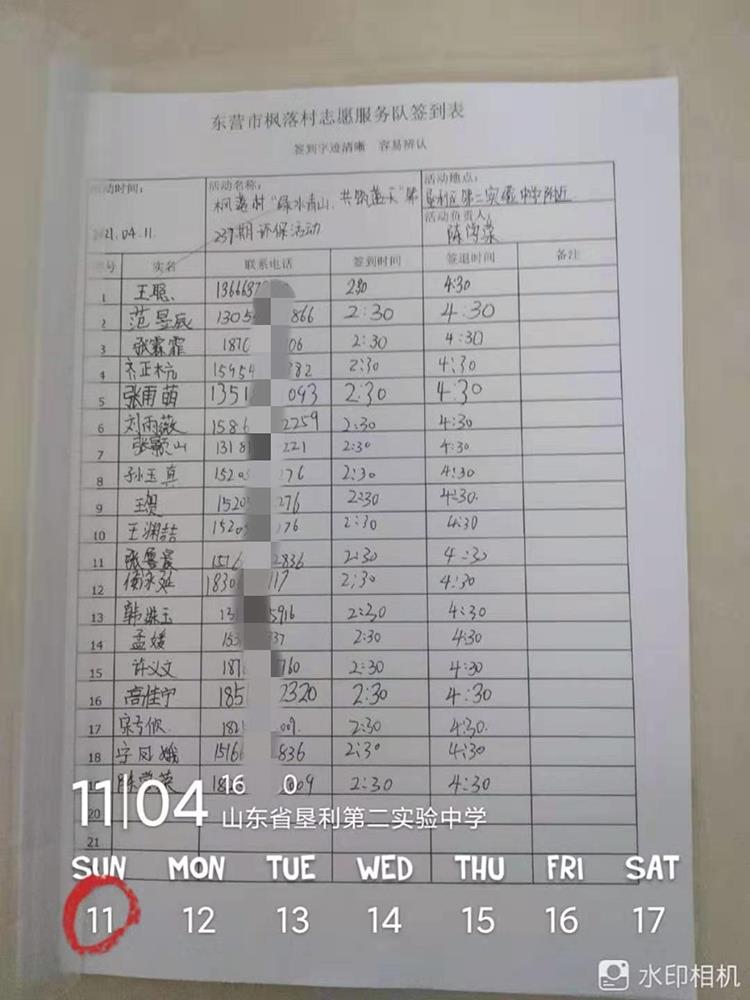 东营市枫落村志愿服务队签到表
签到字迹清晰 容易辨认
活动时间: 活动名称: 活动地点:
枫落村"绿水青山、共筑蓝天"第 垦利区第二实验中学附近
21.04.11. 237期环保活动 活动负责人:
陈学荣
号 实名 联系电话 签到时间 签退时间 备注
1 王聪 136663 2:30 4:30
2 范昱辰 1305 866 2:30 4:30
3 张霖霏 1870 06 2:30 4:30
4 齐正标 15954 382 2:30 4:30
5 张雨萌 1351 093 2:30 4:30
6 刘雨薇 1586 2259 2:30 4:30
7 张颢山 1318 221 2:30 4:30
8 孙玉真 1520 276 2:30 4:30
9 1520 276 2:30 4:30.
10 王渊喆 1520 176 2:30 4:30
11 1516 2836 2:30 4:30
12 1830 117 2:30 4:30
13 韩洙玉 131 5916 2:30 4:30
14 孟媛 153 337 2:30 4:30
15 许义文 187 760 2:30 4:30
16 高佳宁 185 2320 2:30 4:30
17 182 009. 2:30 4:30.
18 宁凤娥 15166 836 2:30 4:30
19 009 2:30 4:30
11|04 16 0
山东省垦利第二实验中学
21
SUN MON TUE WED THU FRI SAT
11 12 13 14 15 16 17
水印相机